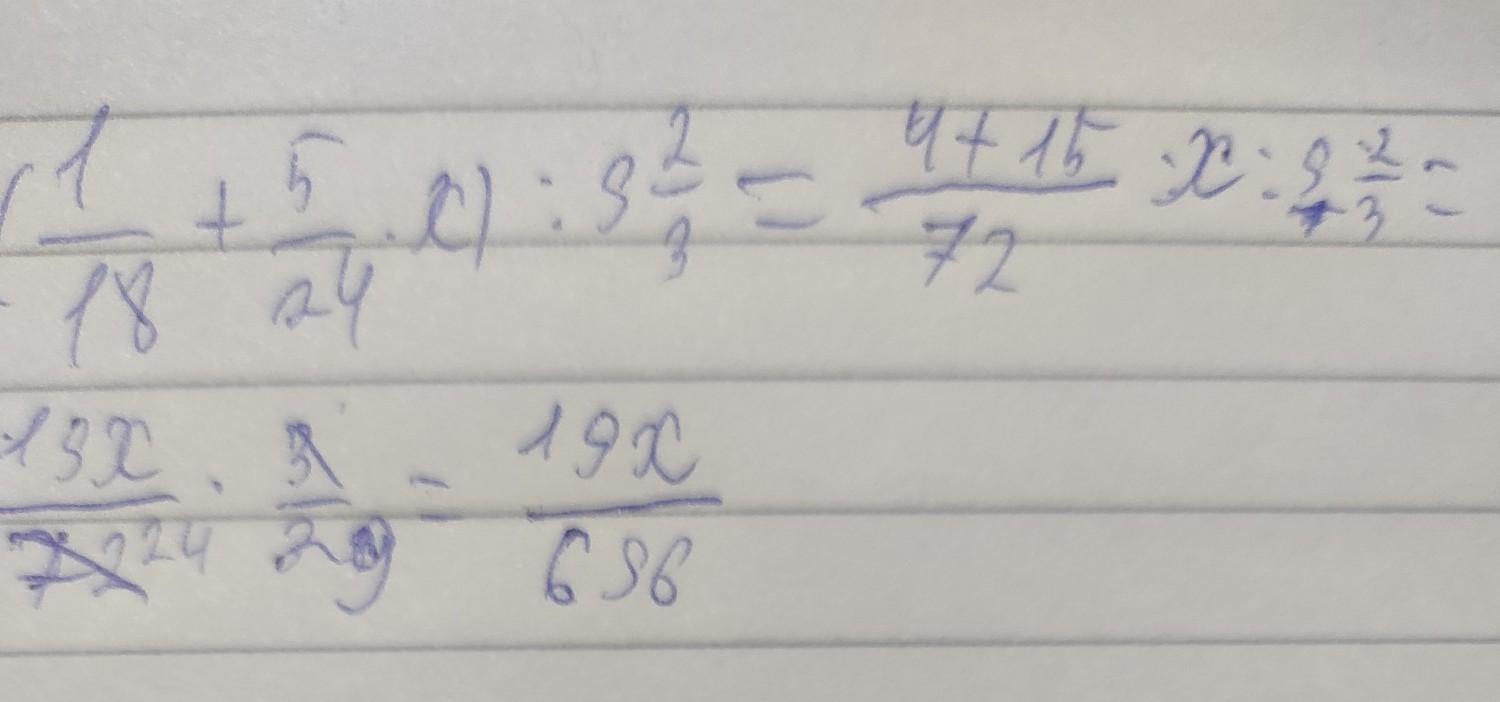 (1/18 + 5/24 · x) : 9 2/3 = 4+15/72 · x : 9 2/3 =
19x/72 24 · 3/29 = 19x/696